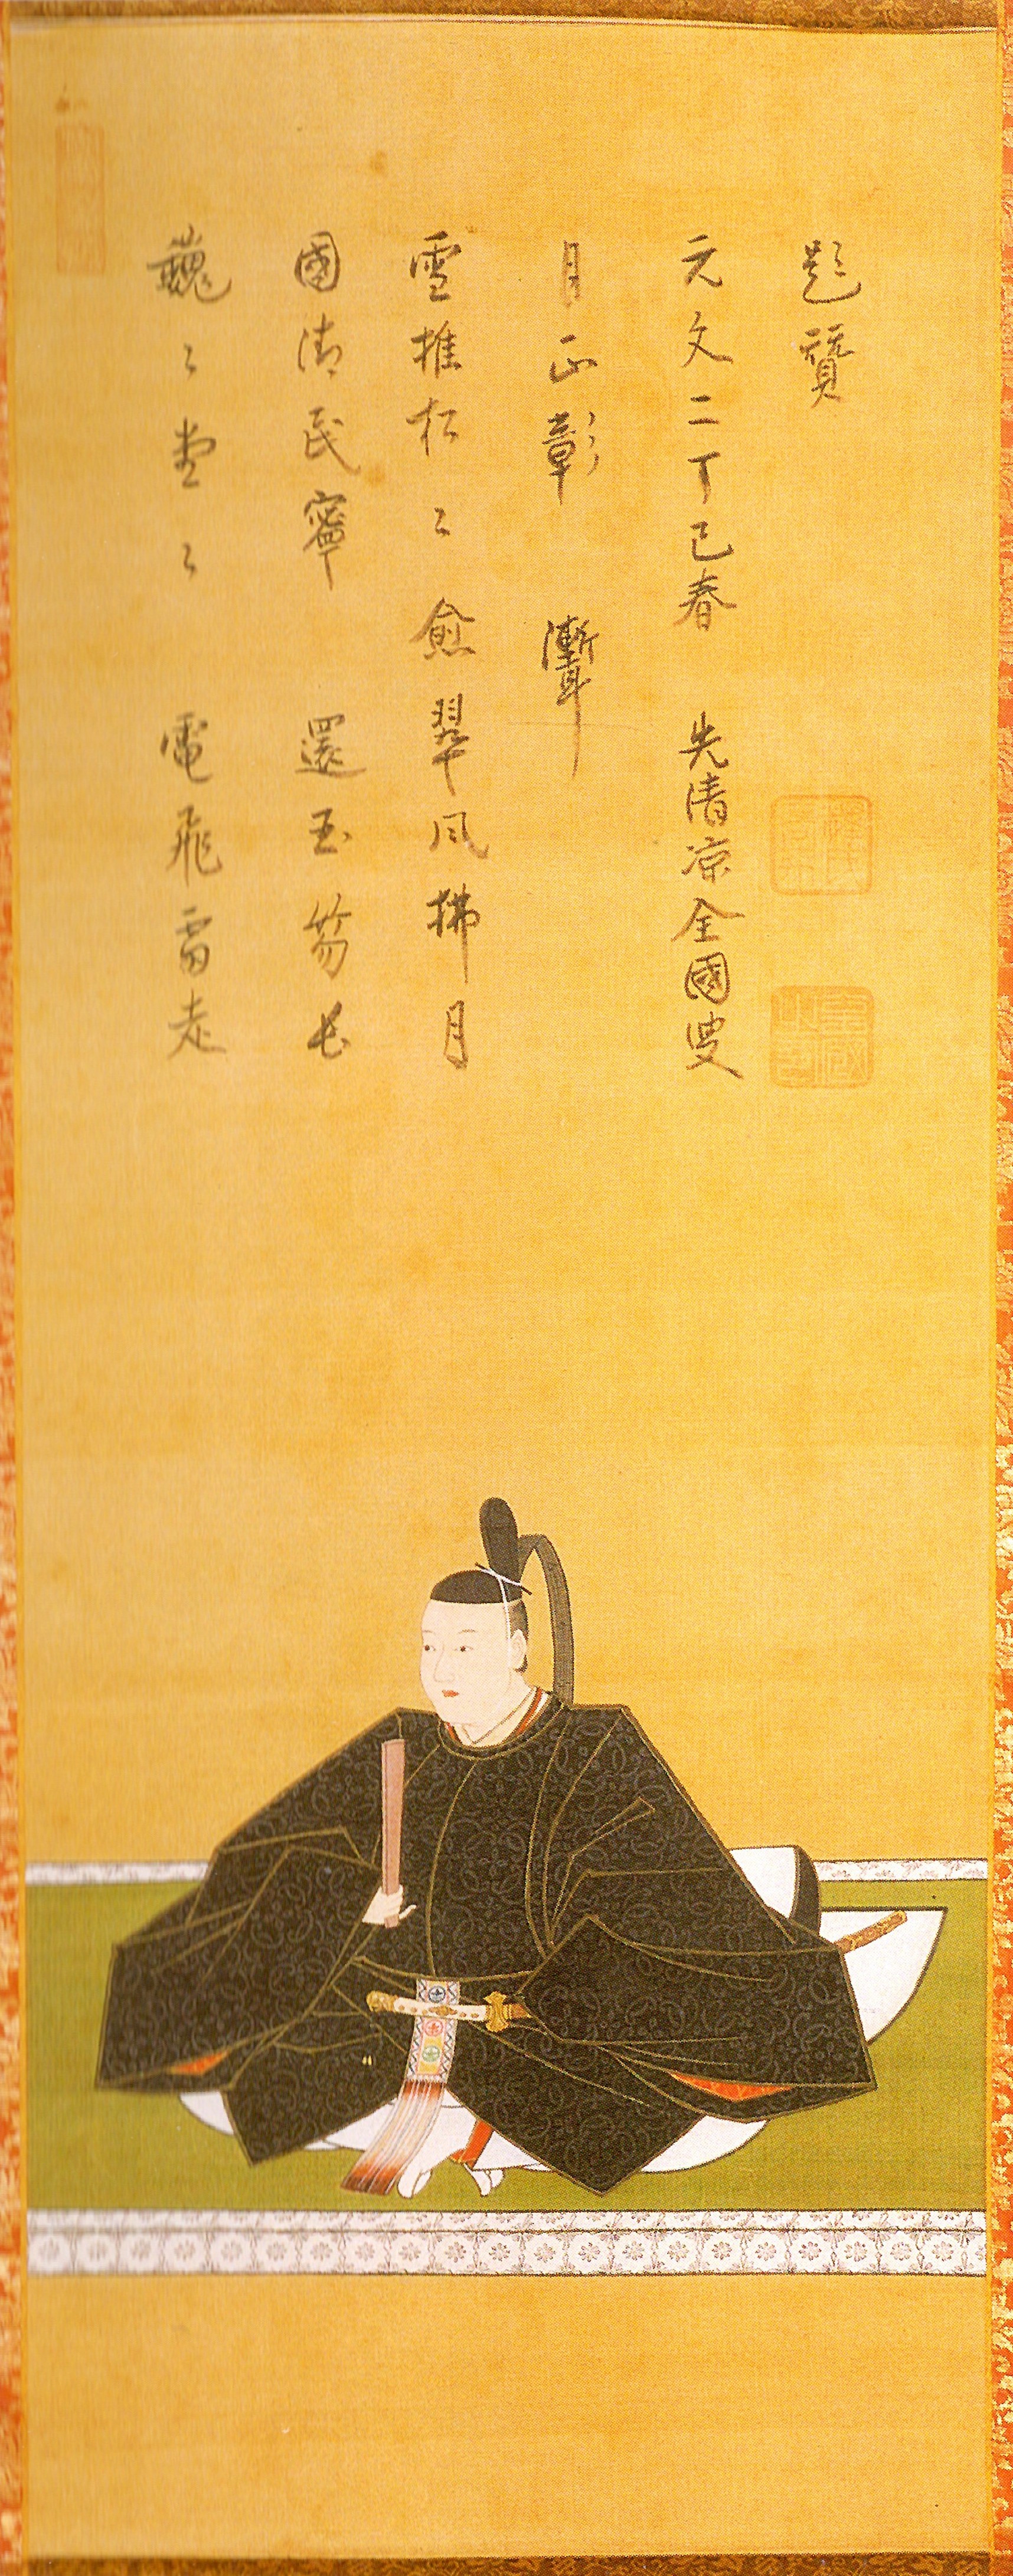 巍々堂々　電飛雷走
國清民寧　還玉笏長
雪推松々愈翠風拂月
月正彰
元文二丁巳春　先清凉全國叟
題贊